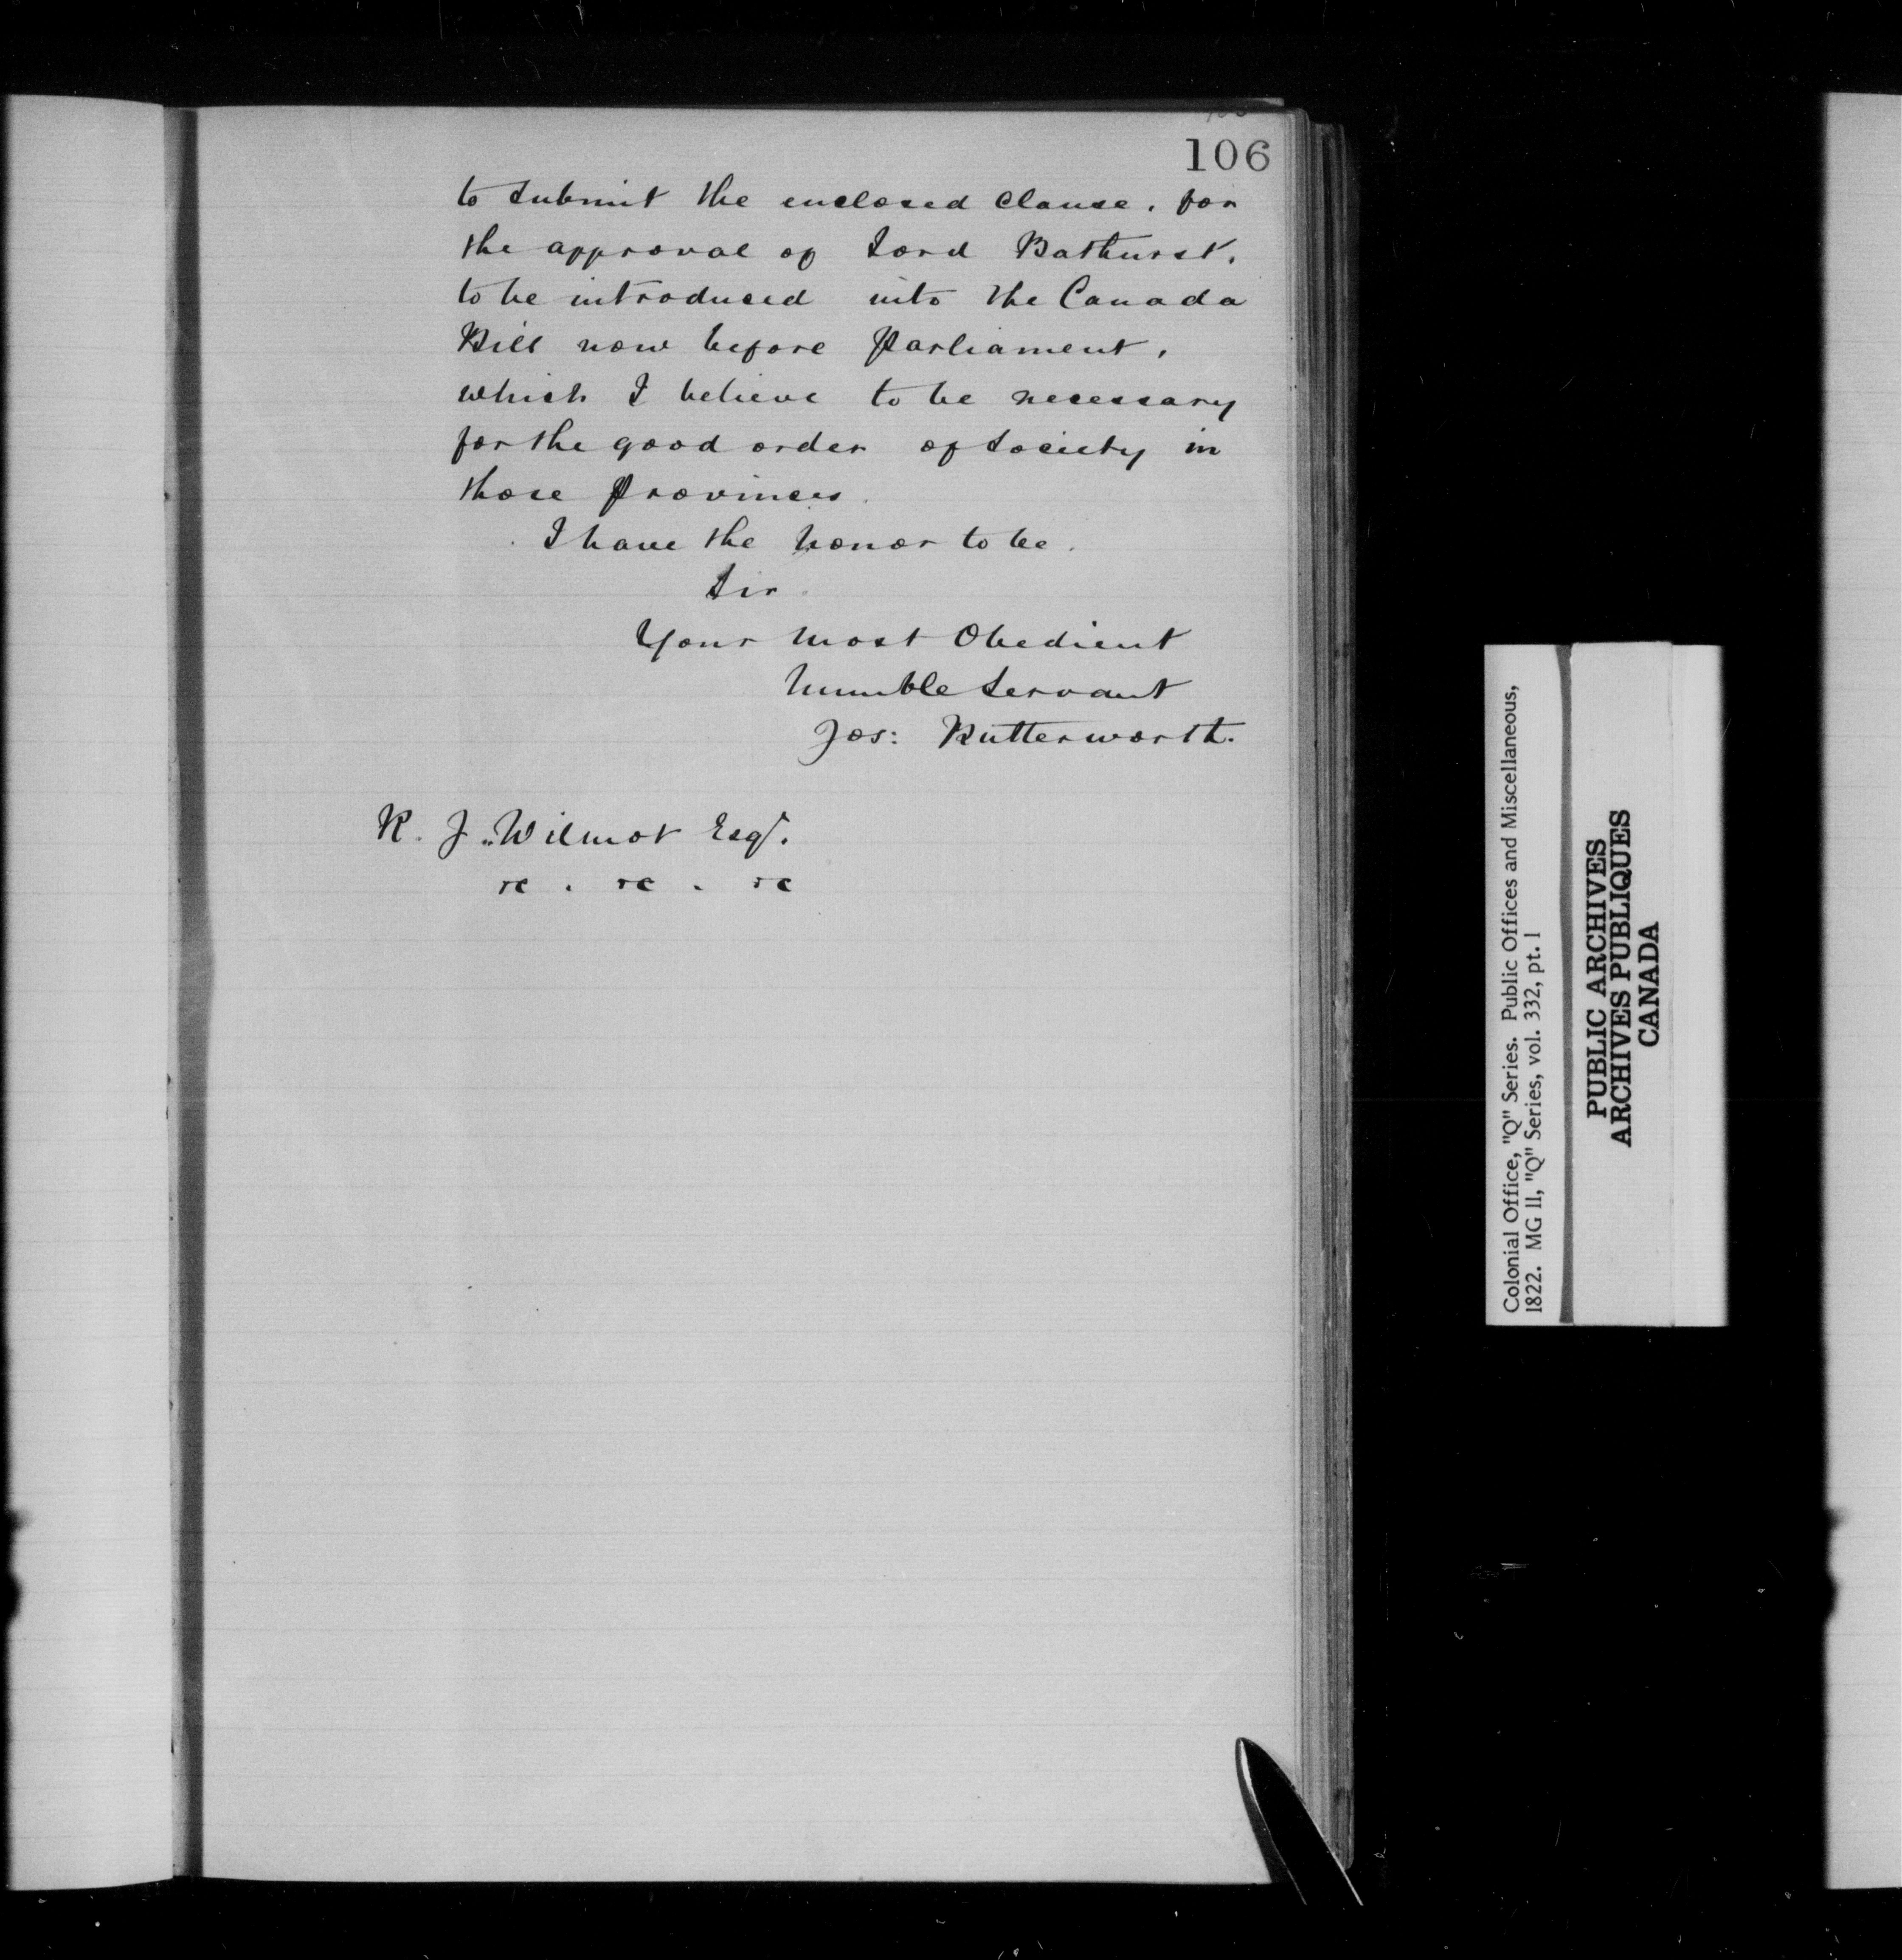 106
to submit the enclosed Clause, for
the approval of Lord Bathurst,
to be introduced into the Canada
Bill now before Parliament,
which I believe to be necessary
for the good order of Society in
those Provinces.
I have the honor to be.
Sir
Your most Obedient
humble Servant
Jos: Butterworth.
R. J. Wilmot Esqr.
&c. &c. &c
Colonial Office, "Q" Series. Public Offices and Miscellaneous,
1822. MG 11, "Q" Series, vol. 332, pt. 1
PUBLIC ARCHIVES
ARCHIVES PUBLIQUES
CANADA